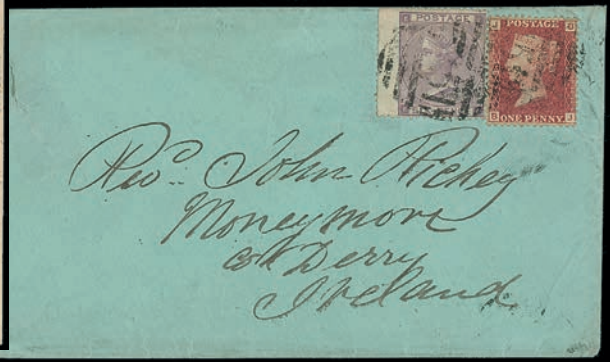 POSTAGE
J O
POSTAGE
B ONE PENNY J
Revd. John Richey
Moneymore
Co Derry
Ireland